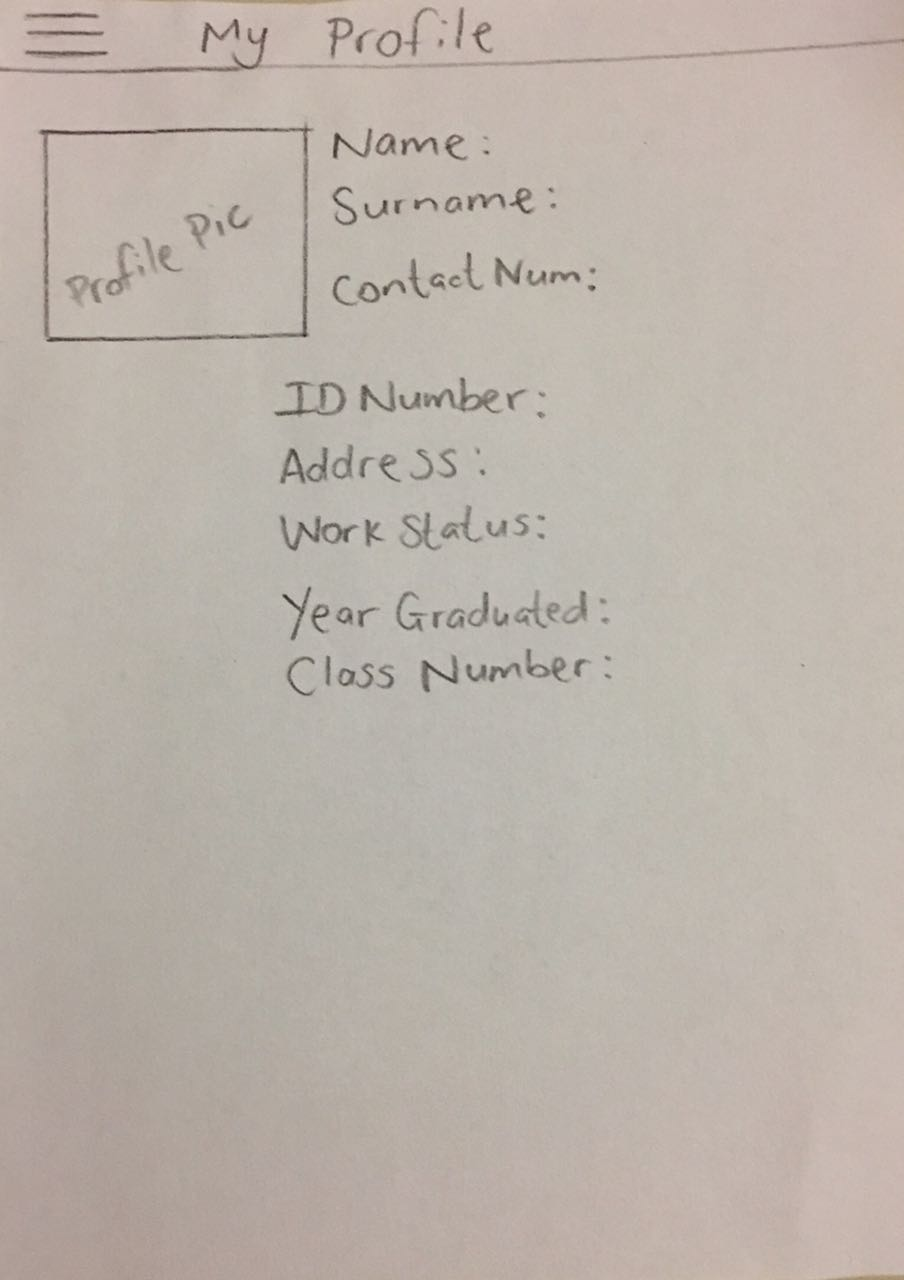 My Profile
Profile Pic
Name:
Surname:
Contact Num:
ID Number:
Address:
Work Status:
Year Graduated:
Class Number: